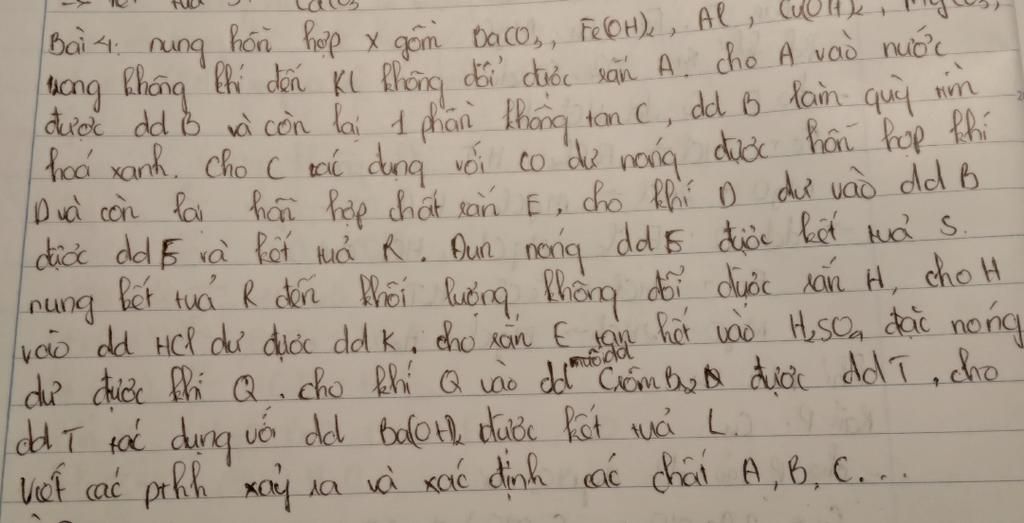 CaCO3
Bài 4: nung hỗn hợp X gồm BaCO3, Fe(OH)2, Al, Cu(OH)2, MgCO3,
trong không khí đến Kl không đổi được rắn A. cho A vào nước
được dd B và còn lại 1 phần không tan C, dd B làm quỳ tím
hoá xanh. Cho C tác dụng với CO dư nóng được hỗn hợp khí
D và còn lại hỗn hợp chất rắn E, cho khí D dư vào dd B
được dd F và kết tuả R. Đun nóng dd F được kết tuả S.
nung kết tuả R đến khối lượng không đổi được rắn H, cho H
vào dd HCl dư được dd K, cho rắn E tan hết vào H2SO4 đặc nóng
dư được khí Q. cho khí Q vào dd nước Brôm Br2 được dd T, cho
dd T tác dụng với dd Ba(OH)2 được kết tuả L.
Viết các pthh xảy ra và xác định các chất A, B, C...